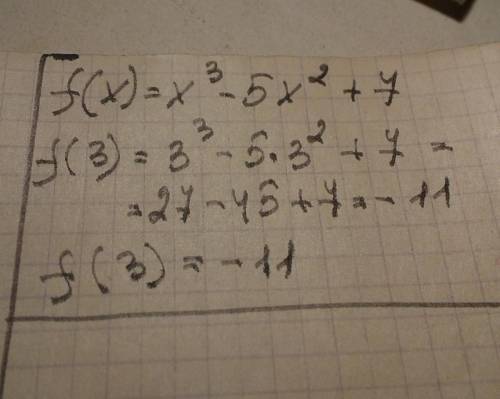 f(x) = x³ - 5x² + 7
f(3) = 3³ - 5·3² + 7 =
= 27 - 45 + 7 = - 11
f(3) = - 11